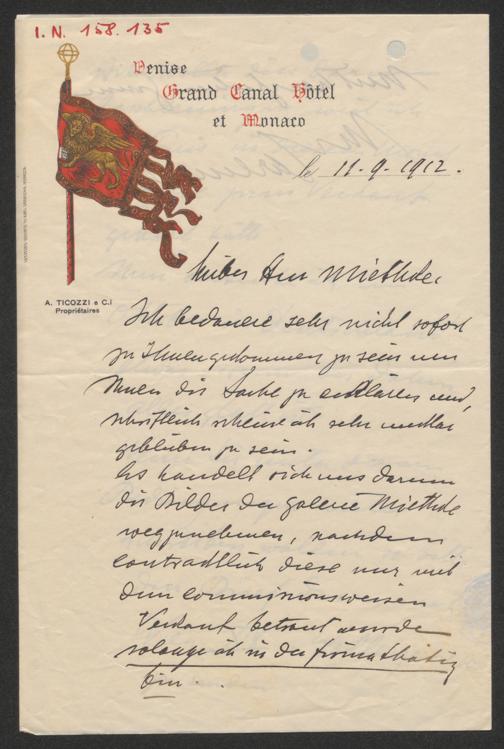 I.N. 158.135
Venise
Grand Canal Hôtel
et Monaco
le 11-9-1912.
A. TICOZZI e C.i
Propriétaires
Lieber Herr Miethke
Ich bedauere sehr nicht sofort
zu Ihnen gekommen zu sein um
Ihnen die Sache zu erklären und,
schriftlich scheine ich sehr unklar
geblieben zu sein.
Es handelt sich uns darum
die Bilder der Galerie Miethke
wegzunehmen, nachdem
contractlich diese nur mit
dem commissionsweisen
Verkauf betraut wurde
solange ich in der Firma thätig
bin.